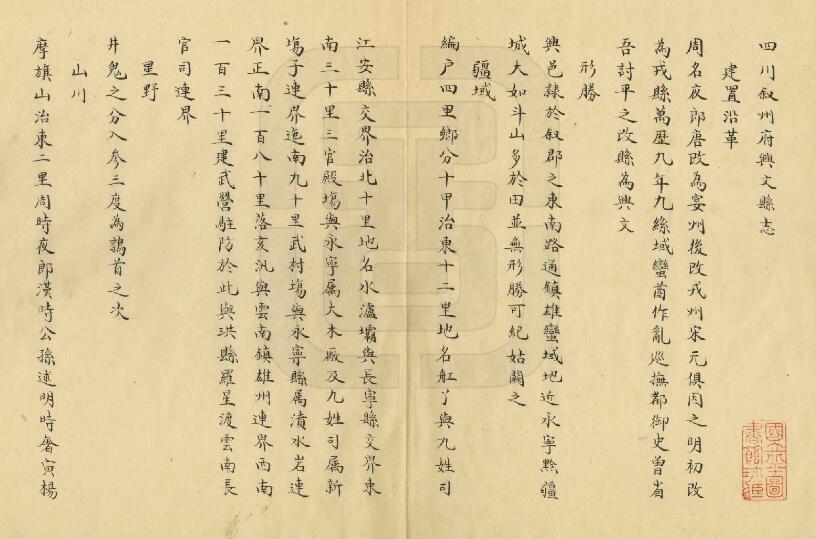 四川叙州府興文縣志
建置沿革
周名夜郎唐改為宴州後改戎州宋元俱因之明初改
為戎縣萬歷九年九絲城蠻酋作亂巡撫都御史曾省
吾討平之改縣為興文
形勝
興邑隸於叙郡之東南路通鎮雄蠻域地近永寧黔疆
城大如斗山多於田並無形勝可紀姑闕之
疆域
編户四里鄉分十甲治東十二里地名舡丫與九姓司
江安縣交界治北十里地名水瀘壩與長寧縣交界東
南三十里三官殿塲與永寧属大木厰及九姓司属新
塲子連界迤南九十里武村塲與永寧縣属濆水岩連
界正南一百八十里落亥汛與雲南鎮雄州連界西南
一百三十里建武營駐防於此與珙縣羅星渡雲南長
官司連界
星野
井鬼之分入參三度為鶉首之次
山川
摩旗山治東二里周時夜郎漢時公孫述明時奢寅楊
國立北平圖
書館珍藏